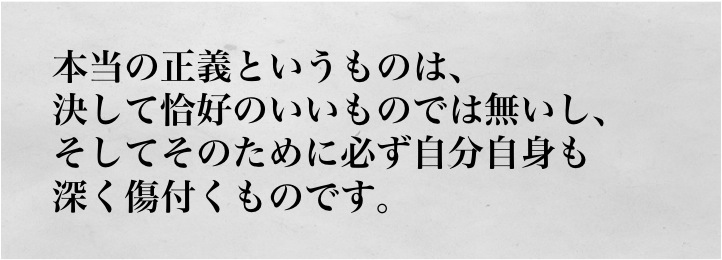 本当の正義というものは、
決して恰好のいいものでは無いし、
そしてそのために必ず自分自身も
深く傷付くものです。